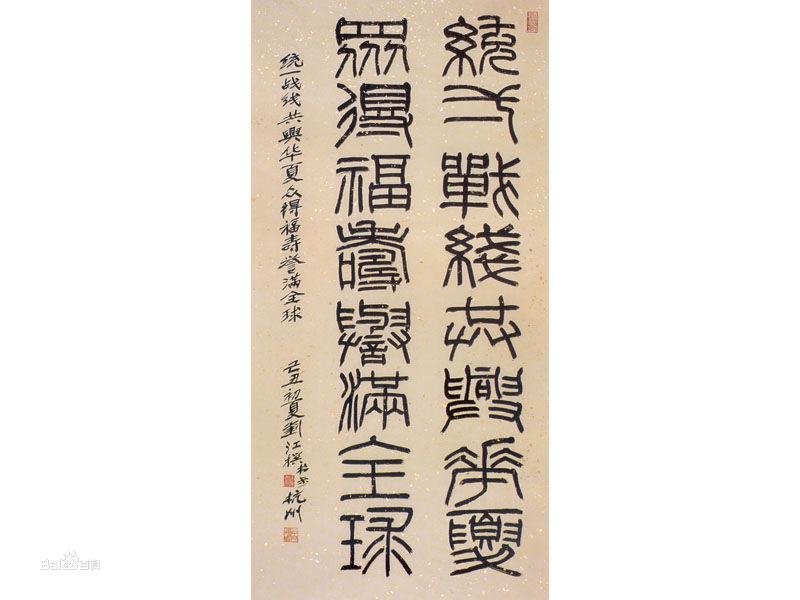 統一戰綫共興華夏
眾得福壽譽滿全球
统一战线共興华夏众得福寿誉满全球
己丑初夏劉江撰 杭州
Bai百科